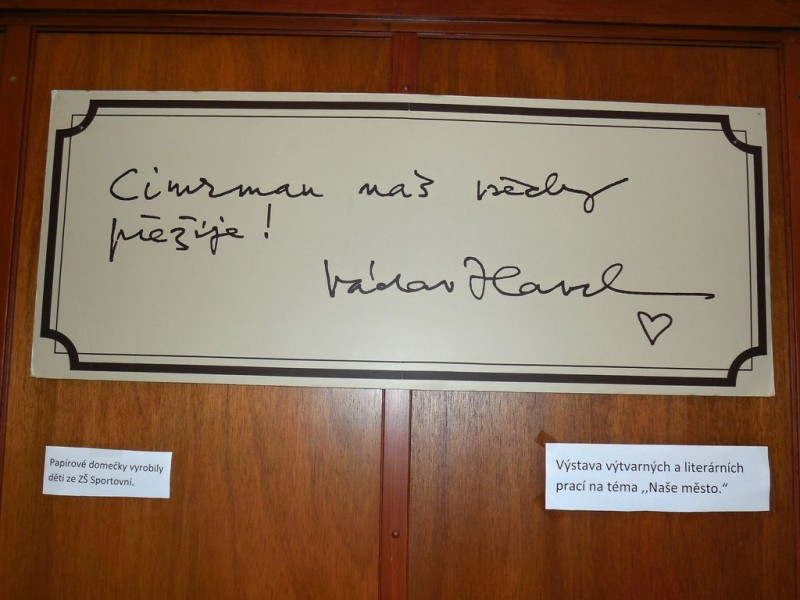 Cimrman naš
přežije!
Václav Havel
Papírové domečky vyrobily
děti ze ZŠ Sportovní.
Výstava výtvarných a literárních
prací na téma ,,Naše město.“